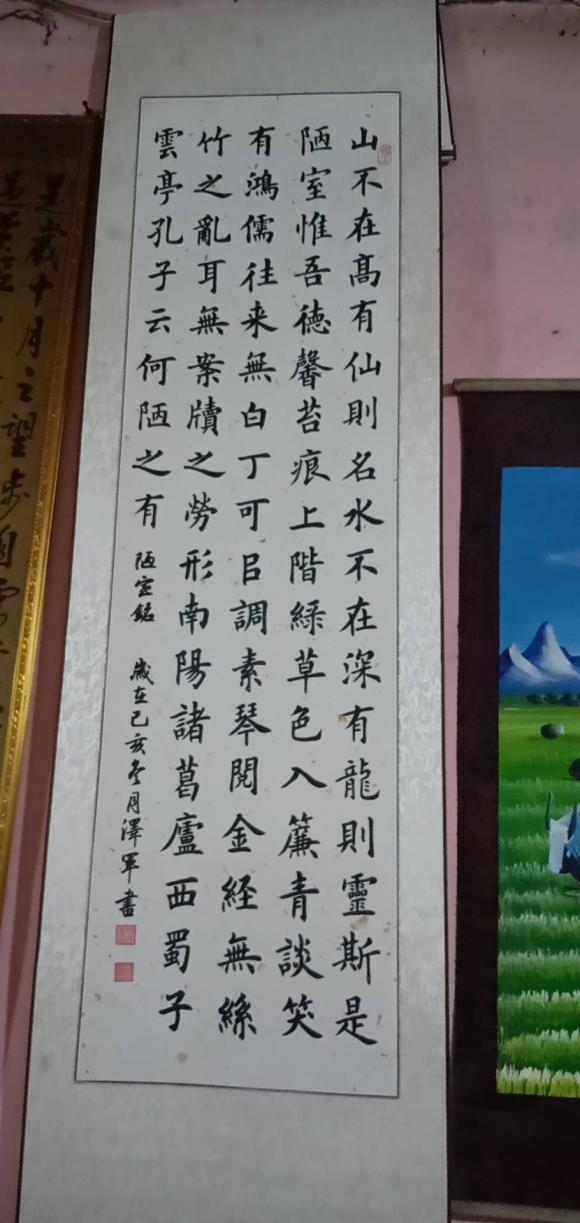 山不在髙有仙則名水不在深有龍則靈斯是
陋室惟吾德馨苔痕上階緑草色入簾青談笑
有鴻儒往来無白丁可㠯調素琴閲金経無絲
竹之亂耳無案牘之勞形南陽諸葛廬西蜀子
雲亭孔子云何陋之有 陋室銘 歲在己亥冬月澤軍書
是歲十月之望步自雪